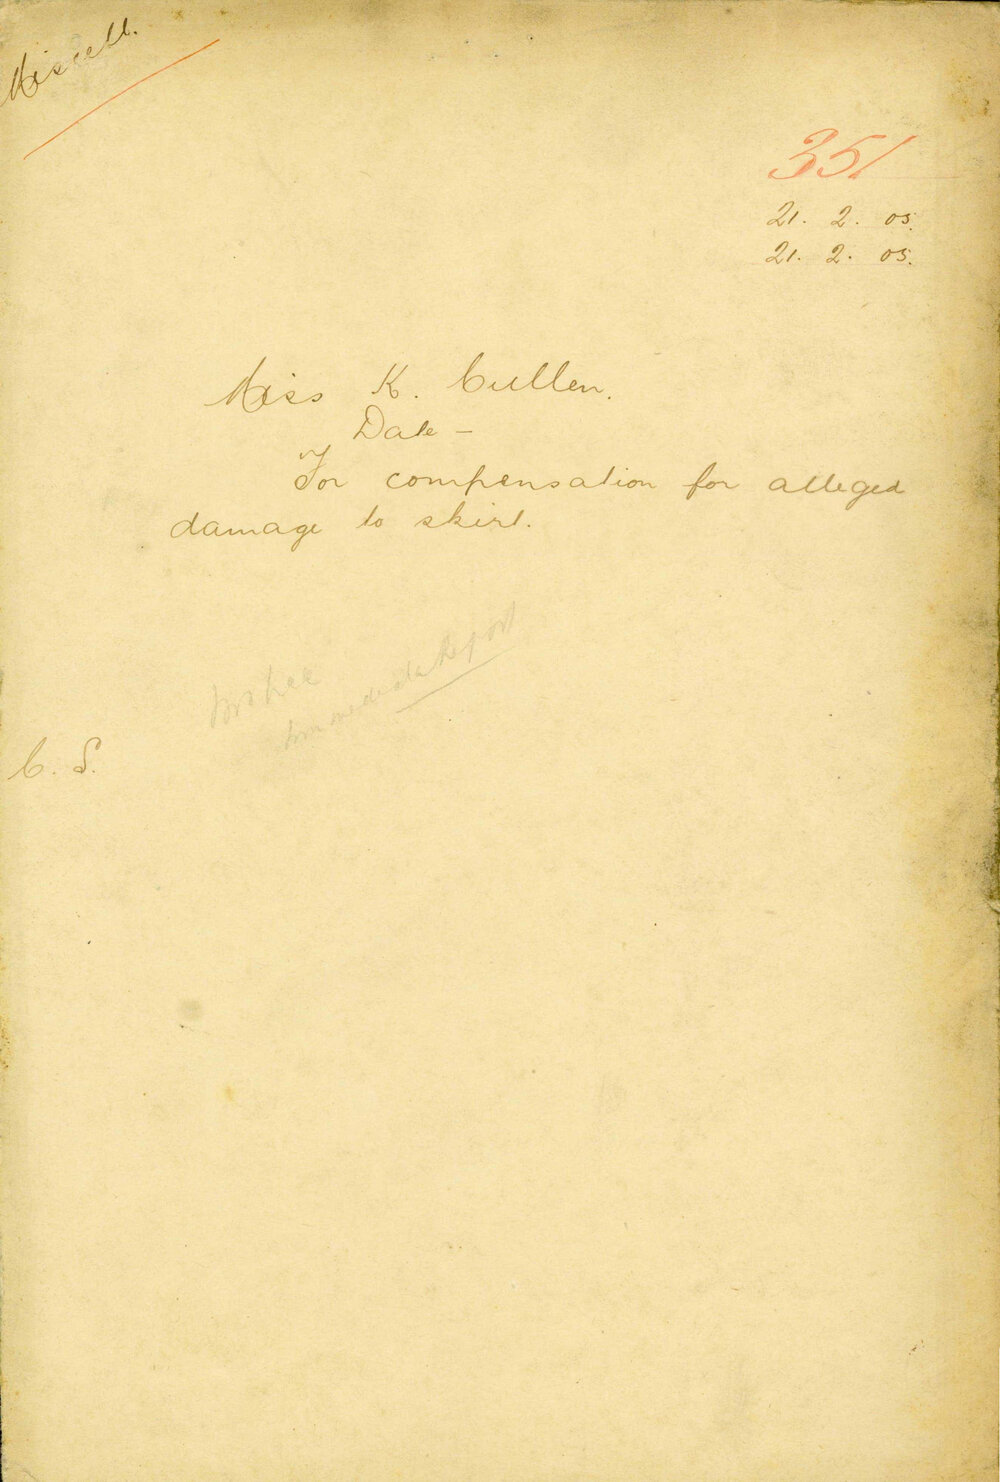 Miscell.
351
21. 2. 05.
21. 2. 05.
Miss K. Cullen.
Date —
For compensation for alleged
damage to skirt.
immediate Report
C. S.